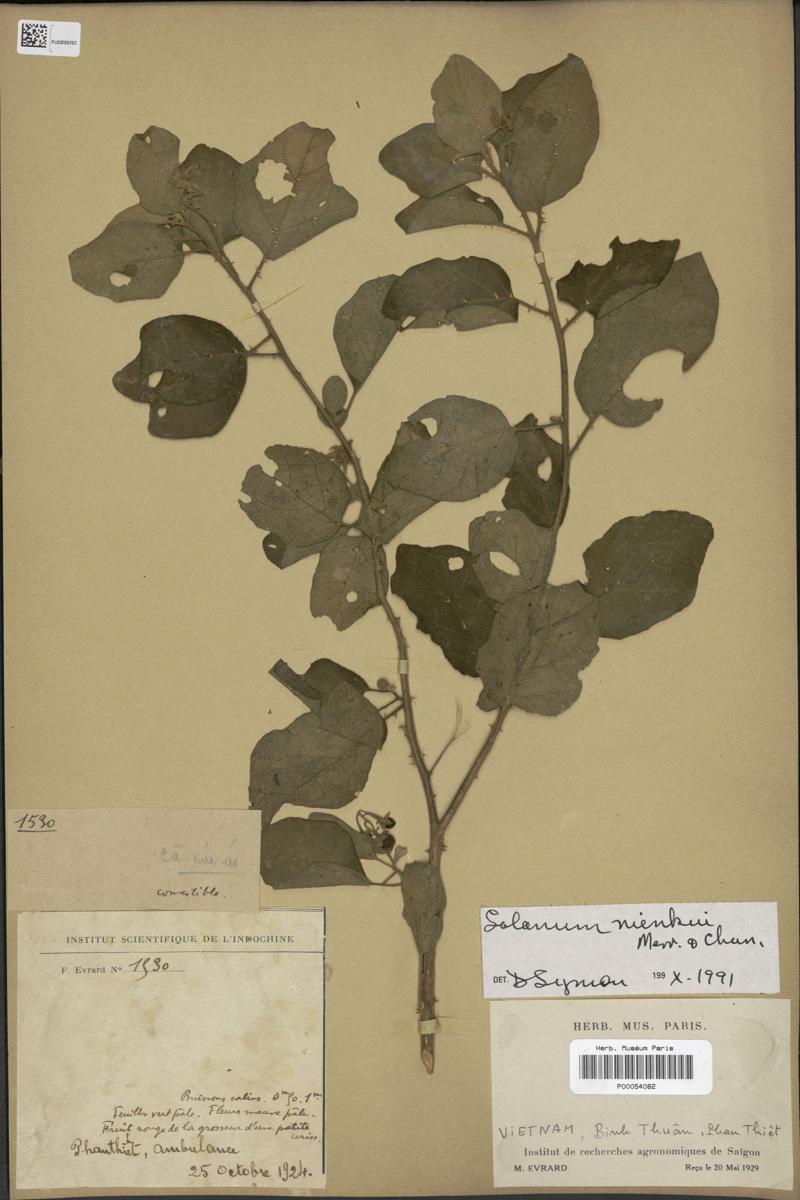 PL03035757
1530
comestible.
INSTITUT SCIENTIFIQUE DE L'INDOCHINE
F. Evrard No 1530
Buissons 0m50.1m
Feuilles vert pâle. Fleurs mauve pâle.
Fruit rouge de la grosseur d'une petite
cerise.
Phanthiêt, ambulance
25 Octobre 1924.
Solanum nienkui
Merr. & Chun.
DET. D Symon 199 X-1991
HERB. MUS. PARIS.
Herb. Muséum Paris
P00054082
VIETNAM, Binh Thuân, Phan Thiêt
Institut de recherches agronomiques de Saïgon
M. EVRARD Reçu le 20 Mai 1929